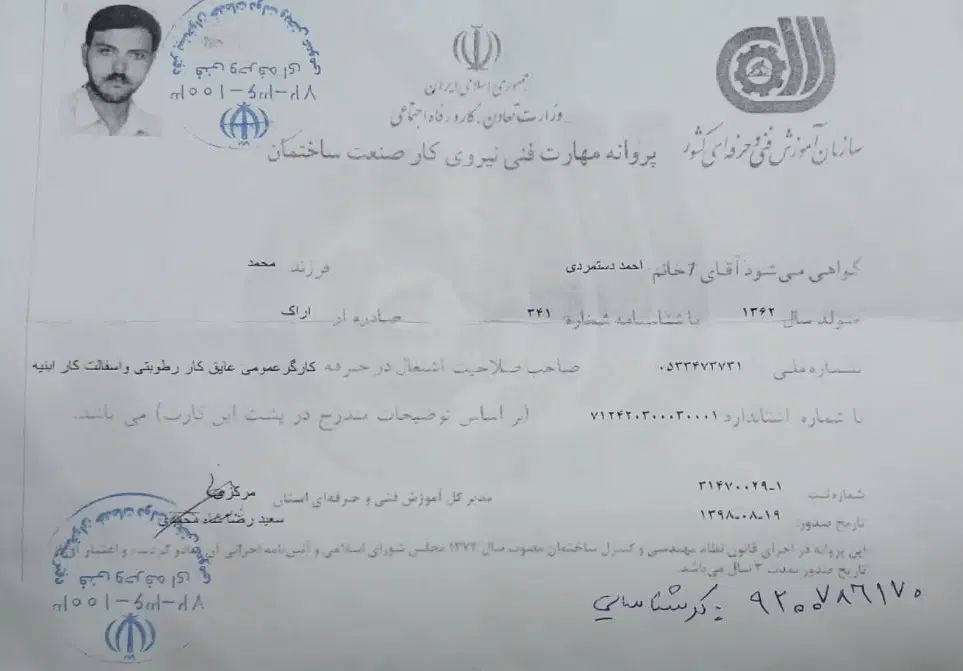 جمهوری اسلامی ایران
وزارت تعاون، کار و رفاه اجتماعی
سازمان آموزش فنی و حرفه‌ای کشور
پروانه مهارت فنی نیروی کار صنعت ساختمان
گواهی می‌شود آقای / خانم احمد دستمردی فرزند محمد
متولد سال ۱۳۶۲ با شناسنامه شماره ۳۴۱ صادره از اراک
شماره ملی ۰۵۳۳۴۷۳۷۳۱ صاحب صلاحیت اشتغال در حرفه کارگر عمومی عایق کار رطوبتی و اسفالت کار ابنیه
با شماره استاندارد ۷۱۲۴۲۰۳۰۰۰۳۰۰۰۱ (بر اساس توضیحات مندرج در پشت این کارت) می باشد.
شماره ثبت ۳۱۴۷۰۰۲۹-۱
مدیر کل آموزش فنی و حرفه‌ای استان مرکزی
تاریخ صدور: ۱۳۹۸-۰۸-۱۹
سعید رضا شاه محمدی
این پروانه در اجرای قانون نظام مهندسی و کنترل ساختمان مصوب سال ۱۳۷۴ مجلس شورای اسلامی و آئین‌نامه اجرائی آن صادر گردیده و اعتبار آن از
تاریخ صدور بمدت ۳ سال می‌باشد.
کد شناسایی: ۹۲۰۰۷۸۶۱۷۰
فنی و حرفه ای
۷۲-۳۶-۱۰۰۵۳
فنی و حرفه ای
۷۲-۳۶-۱۰۰۵۳